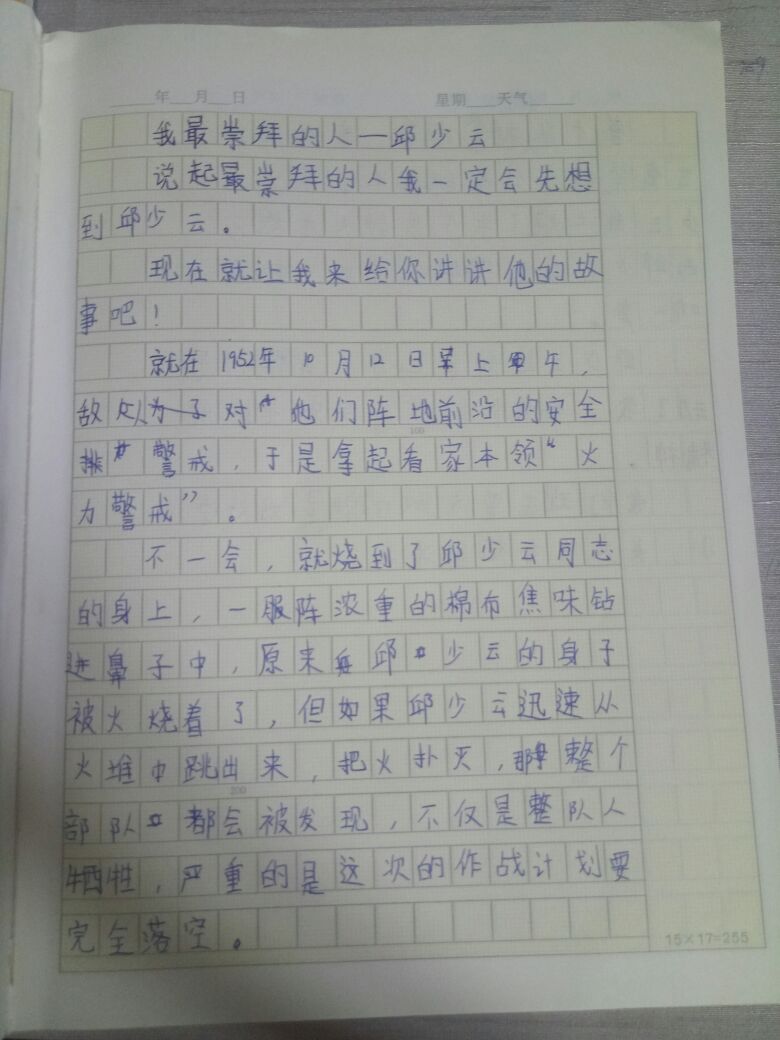 年 月 日 星期 天气
我最崇拜的人一邱少云
说起最崇拜的人我一定会先想
到邱少云。
现在就让我来给你讲讲他的故
事吧！
就在1952年10月12日上午，
敌 对他们阵地前沿的安全
警戒，于是拿起看家本领“火
力警戒”。
不一会，就烧到了邱少云同志
的身上，一服阵浓重的棉布焦味钻
进鼻子中，原来邱少云的身子
被火烧着了，但如果邱少云迅速从
火堆中跳出来，把火扑灭，那整个
部队都会被发现，不仅是整队人
牺牲，严重的是这次的作战计划要
完全落空。
100
200
15×17=255